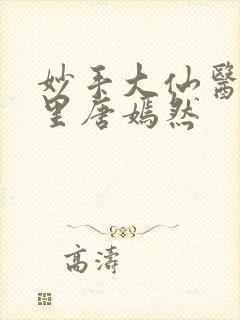 妙手大仙醫
里唐嫣然
高濤